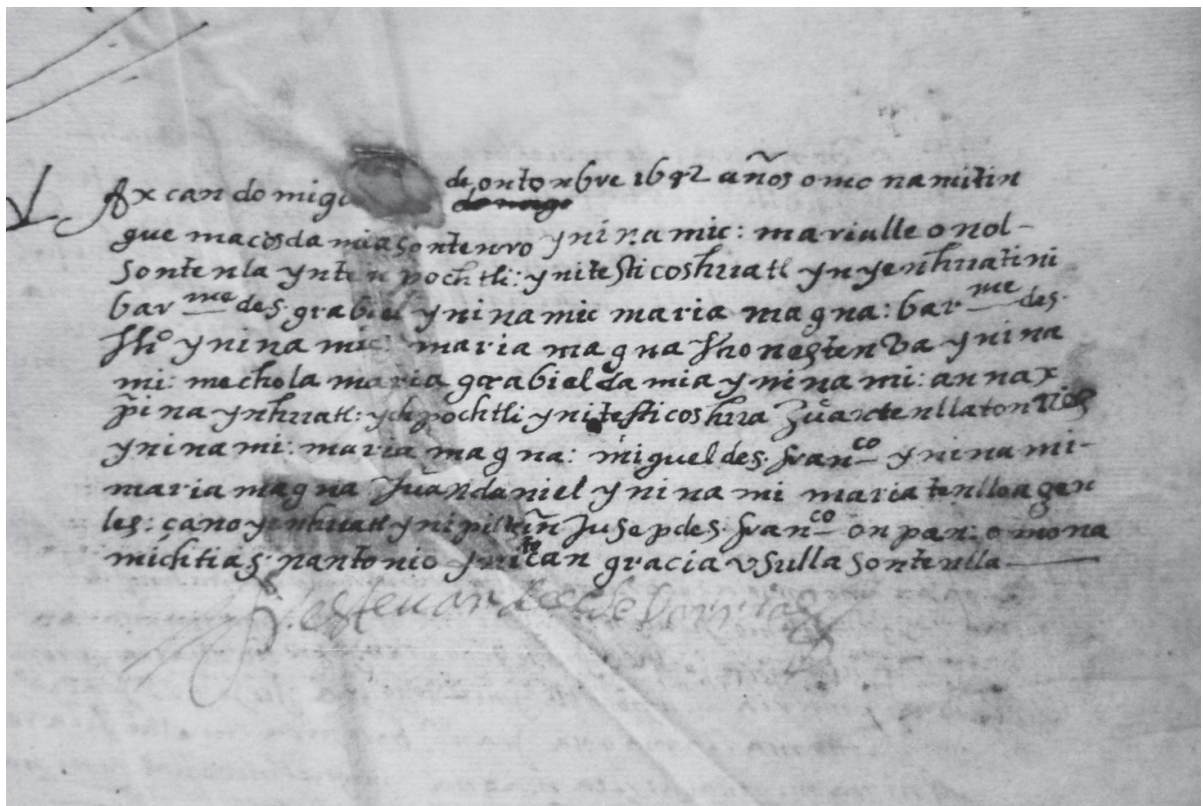 Axcan domigo de ontonbre 1692 años omo namitin
que macos damiasontenro yninamic: mariulleonol-
sontenla ynten pochtli: ynitesticoshuatl ynyenhuatini
bar^me des. grabiel yninamic maria magna: bar^me des.
Jhº yninamic: maria magna Jho nestenva ynina
mi: mechola maria grabiel damia yninami: anna x
pina ynhuatl: ychpochtli ynitesticoshua
yninami: maria magna: miguel des. fran^co yninami-
maria magna Juan daniel yninami maria tenlloagen
les: cano yenhuatl ynipiltzin Jusep des. fran^co onpan: omona
michtia s. nantonio ynitcan gracia vsulla sontenlla